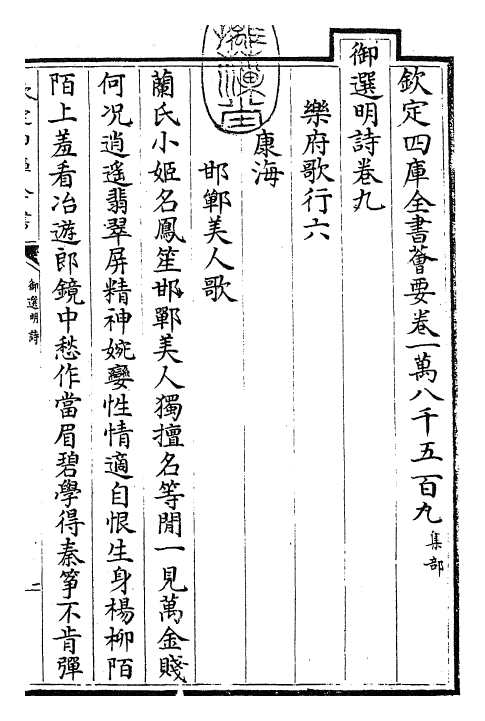 欽定四庫全書薈要卷一萬八千五百九集部
御選明詩卷九
樂府歌行六
康海
邯鄲美人歌
蘭氏小姬名鳳笙邯鄲美人獨擅名等閒一見萬金賤
何況逍遙翡翠屏精神婉孌性情適自恨生身楊柳陌
陌上羞看冶遊郎鏡中愁作當眉碧學得秦箏不肯彈
御選明詩